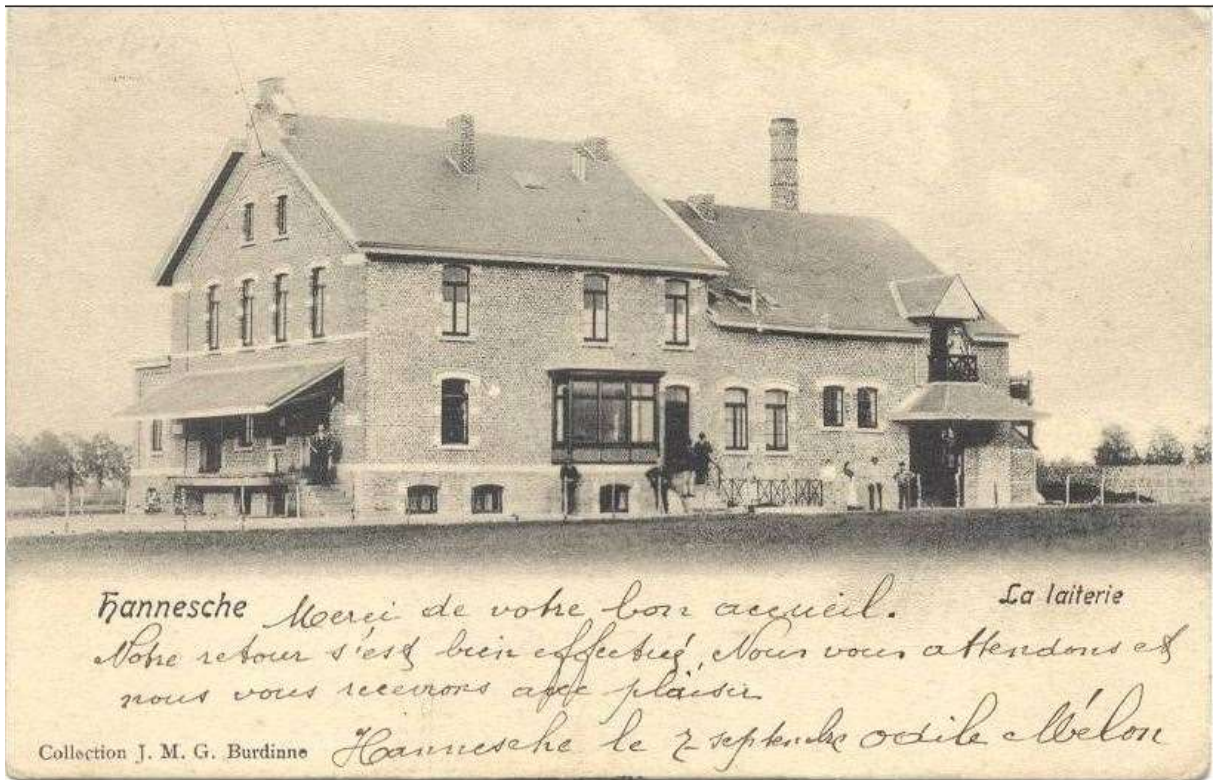 Hannesche
Merci de votre bon accueil.
La laiterie
Notre retour s'est bien effectué, Nous vous attendons et
nous vous recevrons avec plaisir
Hannesche le 7 septembre Odile Mélon
Collection J. M. G. Burdinne